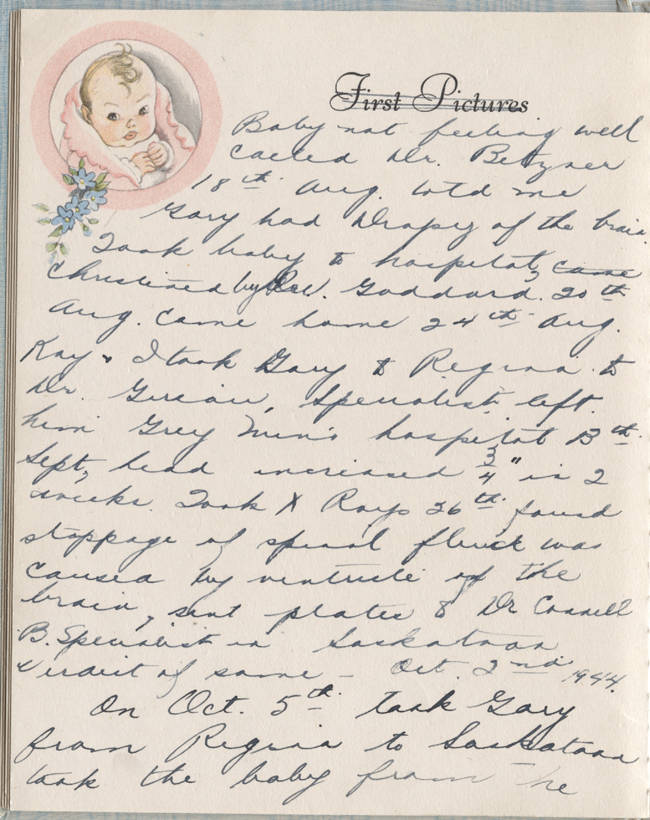 First Pictures
Baby not feeling well
called Dr. Betzner
18th Aug. told me
Gary had Dropsy of the brain.
Took baby to hospital, came
Christened by Rev. Goddard. 20th
Aug. came home 24th Aug.
Kay & I took Gary to Regina to
Dr. Specialist left
him Grey Nun's hospital 13th
Sept, head increased 3/4" in 2
weeks. Took X Rays 26th, found
stoppage of spinal fluid was
caused by ventricle of the
brain, sent plates to Dr Connell
B. Specialist in Saskatoon
Verdict of same – Oct. 2nd 1944.
On Oct. 5th took Gary
from Regina to Saskatoon
took the baby from the